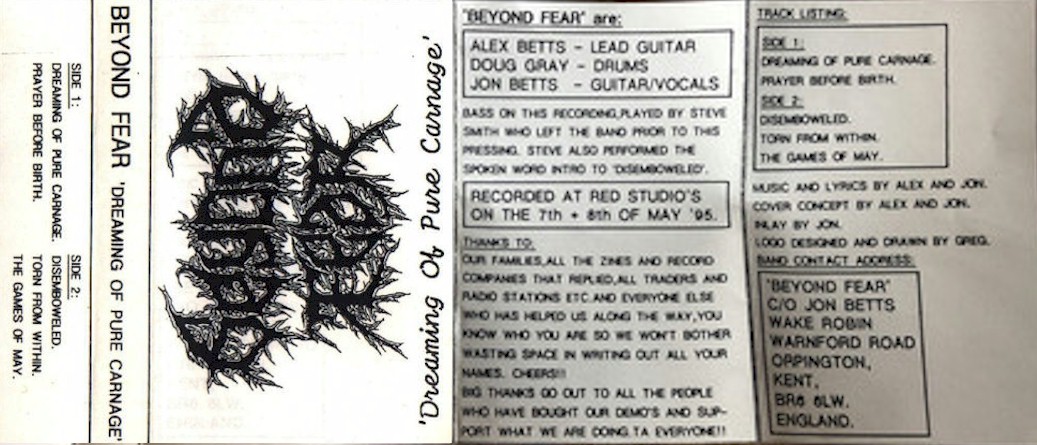 SIDE 1:
DREAMING OF PURE CARNAGE.
PRAYER BEFORE BIRTH.
SIDE 2:
DISEMBOWELED.
TORN FROM WITHIN.
THE GAMES OF MAY.
BEYOND FEAR 'DREAMING OF PURE CARNAGE'
'Dreaming Of Pure Carnage'
"BEYOND FEAR" are:
ALEX BETTS - LEAD GUITAR
DOUG GRAY - DRUMS
JON BETTS - GUITAR/VOCALS
BASS ON THIS RECORDING,PLAYED BY STEVE
SMITH WHO LEFT THE BAND PRIOR TO THIS
PRESSING. STEVE ALSO PERFORMED THE
SPOKEN WORD INTRO TO 'DISEMBOWELED'.
RECORDED AT RED STUDIO'S
ON THE 7th + 8th OF MAY '95.
THANKS TO:
OUR FAMILIES,ALL THE ZINES AND RECORD
COMPANIES THAT REPLIED,ALL TRADERS AND
RADIO STATIONS ETC.AND EVERYONE ELSE
WHO HAS HELPED US ALONG THE WAY,YOU
KNOW WHO YOU ARE SO WE WON'T BOTHER
WASTING SPACE IN WRITING OUT ALL YOUR
NAMES. CHEERS!!!
BIG THANKS GO OUT TO ALL THE PEOPLE
WHO HAVE BOUGHT OUR DEMO'S AND SUP-
PORT WHAT WE ARE DOING.TA EVERYONE!!
TRACK LISTING:
SIDE 1:
DREAMING OF PURE CARNAGE.
PRAYER BEFORE BIRTH.
SIDE 2:
DISEMBOWELED.
TORN FROM WITHIN.
THE GAMES OF MAY.
MUSIC AND LYRICS BY ALEX AND JON.
COVER CONCEPT BY ALEX AND JON.
INLAY BY JON.
LOGO DESIGNED AND DRAWN BY GREG.
BAND CONTACT ADDRESS:
"BEYOND FEAR"
C/O JON BETTS
WAKE ROBIN
WARNFORD ROAD
ORPINGTON,
KENT,
BR6 6LW.
ENGLAND.